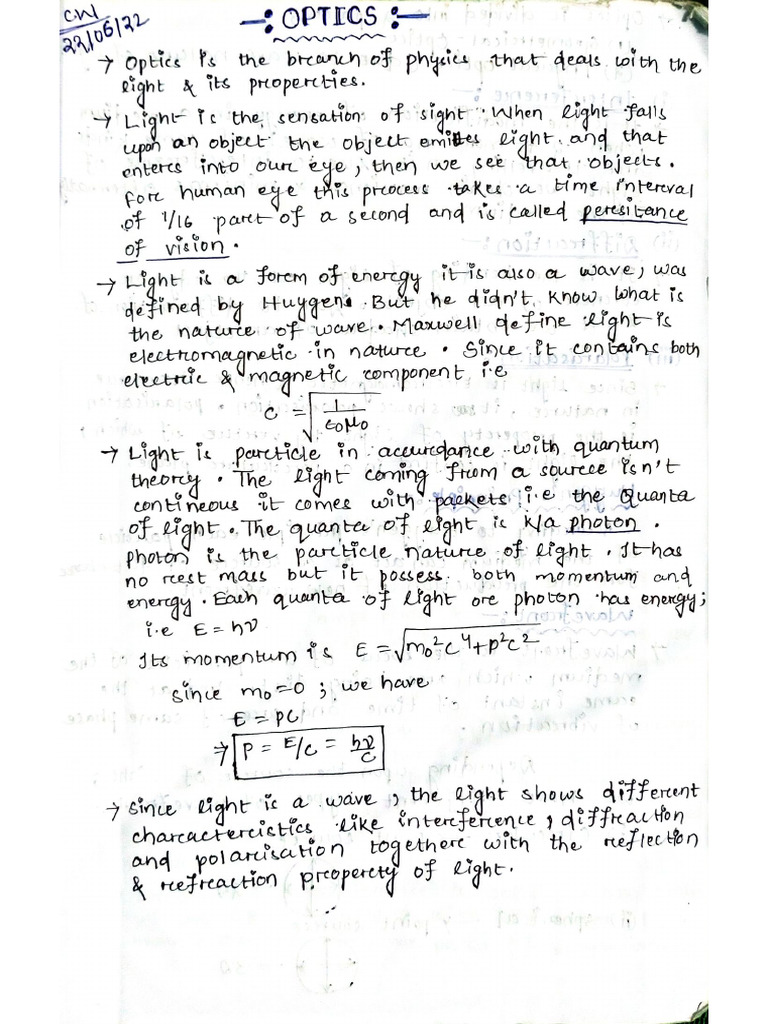 CW
22/06/22
-: OPTICS :-
→ Optics is the breanch of physics that deals with the
light & its propercties.
→ Light is the sensation of sight. When light falls
upon an object the object emittes light and that
enteres into oure eye, then we see that objects.
fore human eye this process takes a time interval
of 1/16 parct of a second and is called peresitance
of vision.
→ Light is a forcm of energy it is also a wave, was
defined by Huygen. But he didn't know what is
the nature of wave. Maxwell define light is
electromagnetic in nature. Since it contains both
electric & magnetic component i.e
C = √(1/ε₀μ₀)
→ Light is parcticle in accurcdance with quantum
theory. The light coming from a source isn't
contineous it comes with packets i.e the Quanta
of light. The quanta of light is k/a photon.
Photon is the parcticle nature of light. It has
no rest mass but it possess both momentum and
energy. Each quanta of light ore photon has energy;
i.e E = hν
Its momentum is E = √(m₀²c⁴+p²c²)
since m₀=0 ; we have
E = PC
⇒ P = E/C = hν/C
→ Since light is a wave, the light shows different
charcactercistics like intercference, diffraction
and polarcisation togethere with the reflection
& refraction propercty of light.